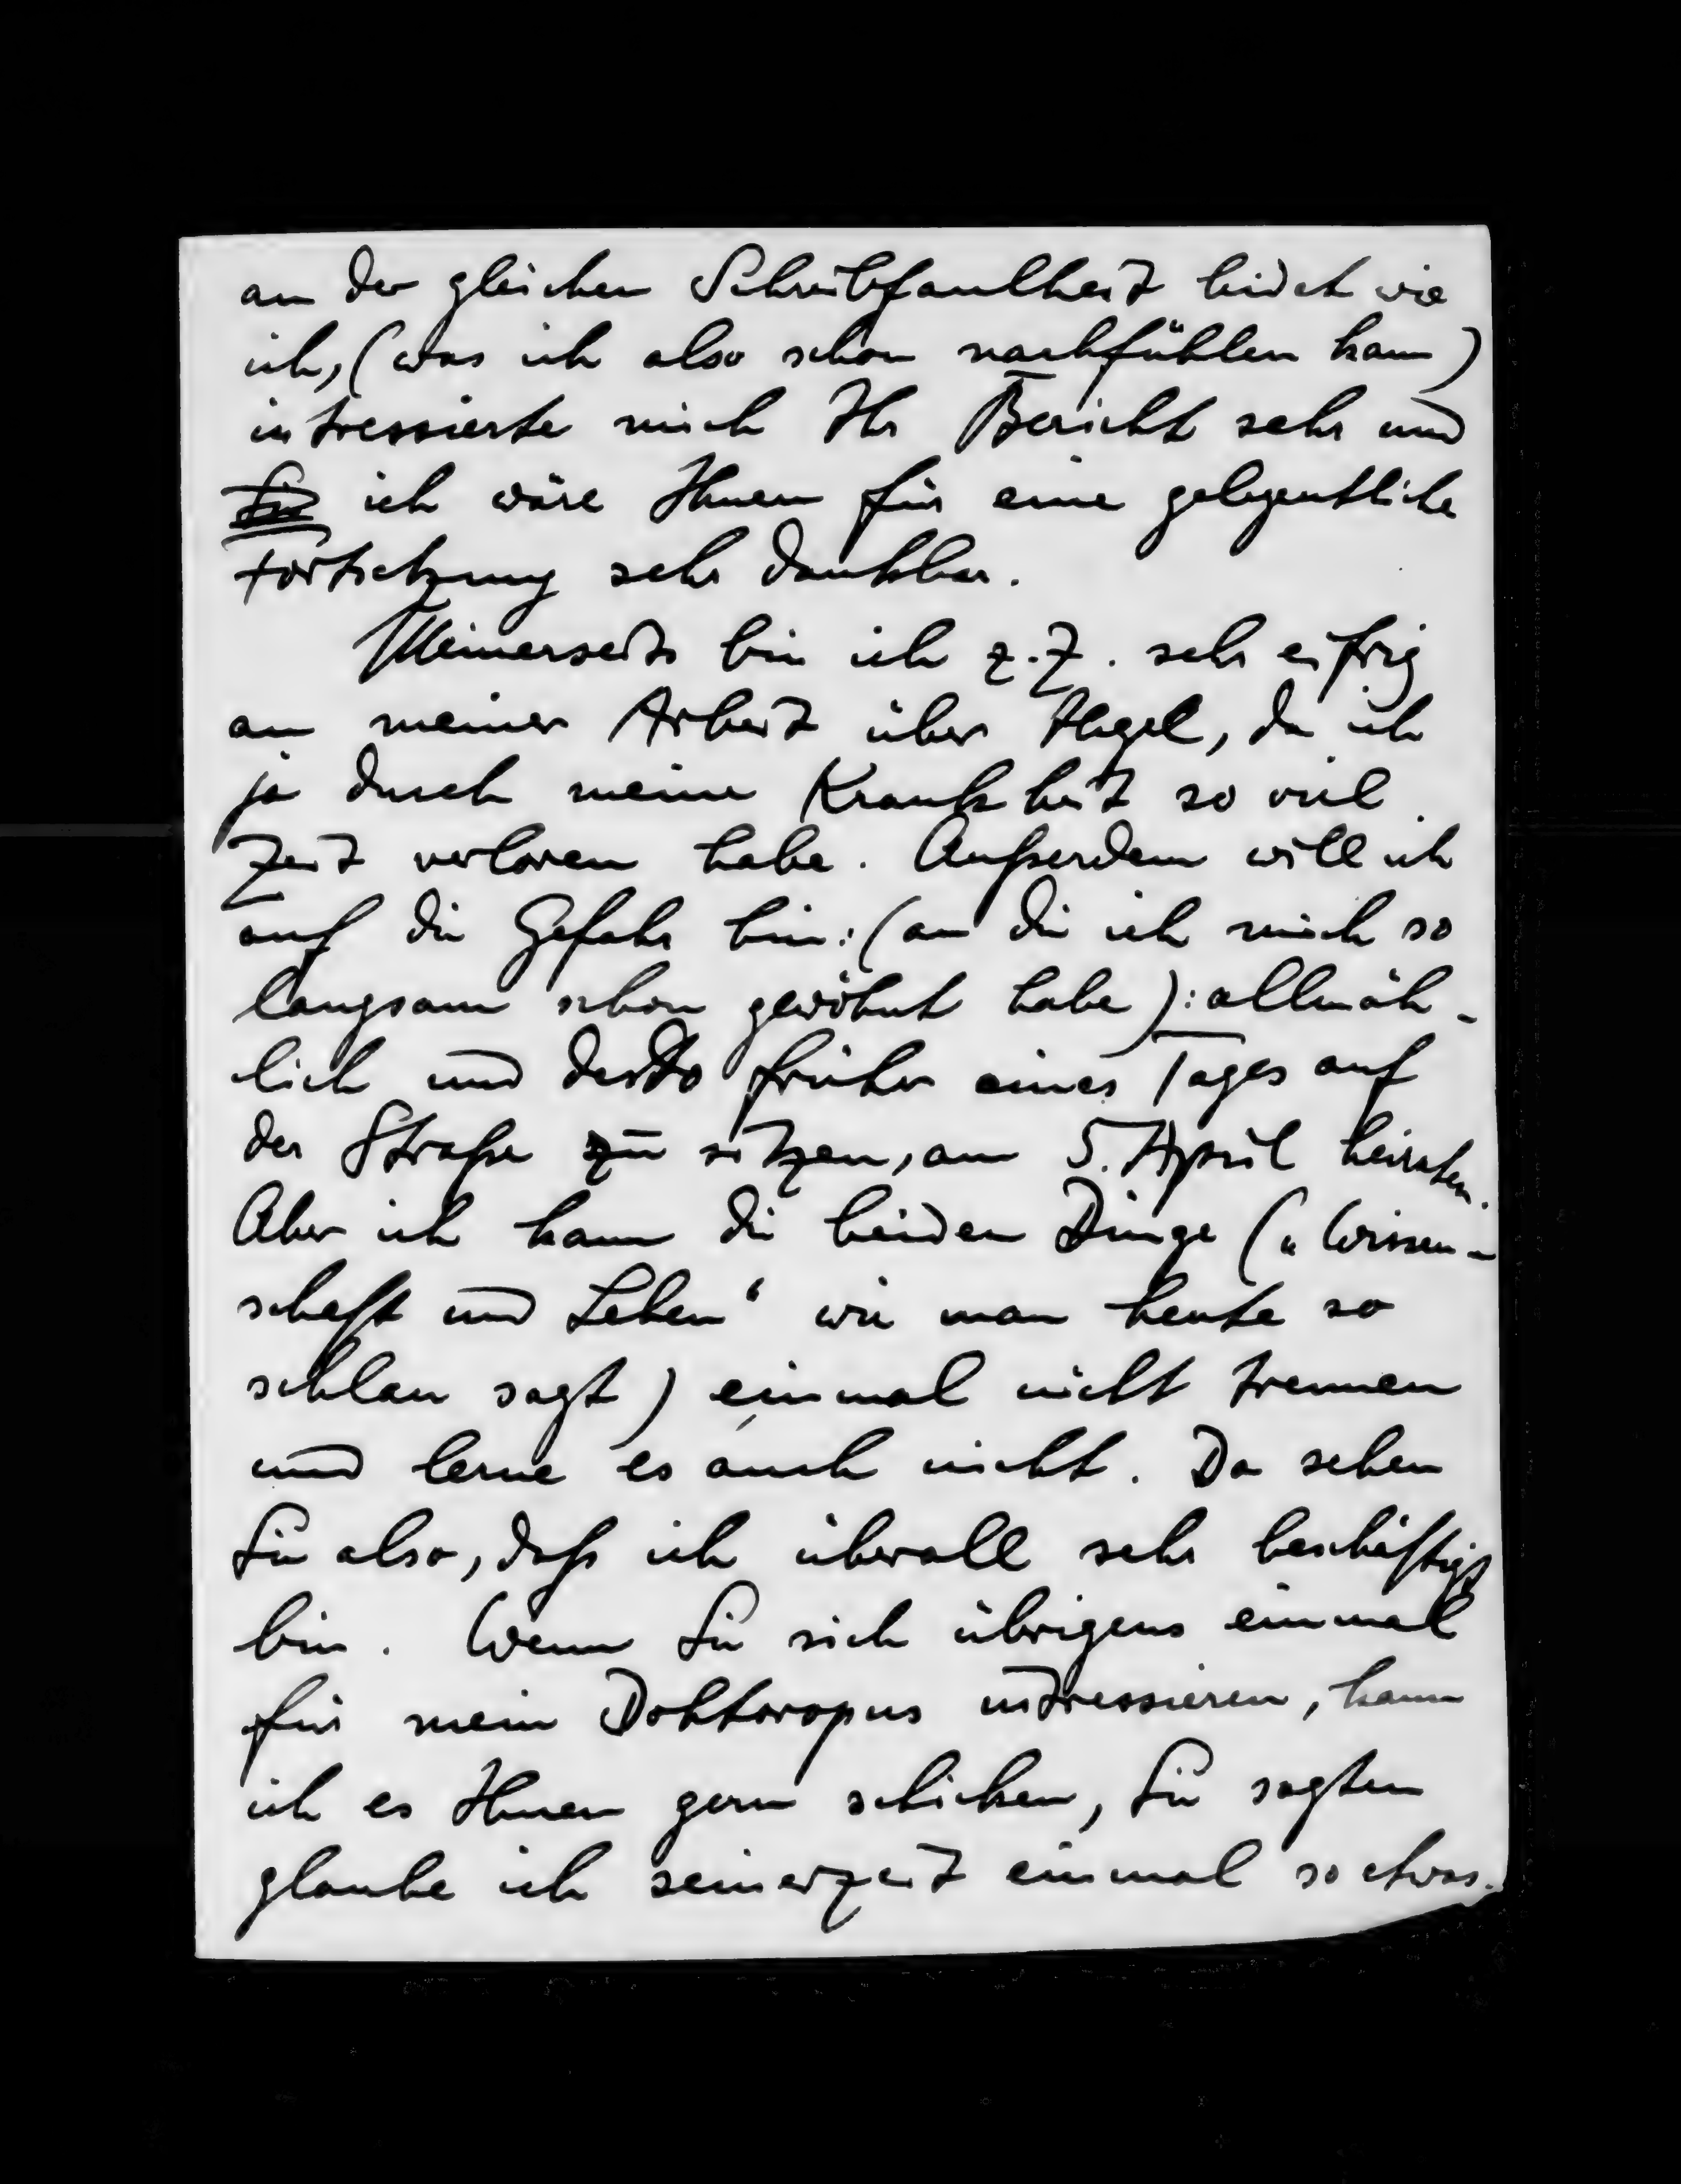 an der gleichen Schreibfaulheit leidet wie
ich, (was ich also schon nachfühlen kann)
intressierte mich Ihr Bericht sehr und
Sie ich wäre Ihnen für eine gelegentliche
Fortsetzung sehr dankbar.
Meinerseits bin ich z.Z. sehr eifrig
an meiner Arbeit über Hegel, da ich
ja durch meine Krankheit so viel
Zeit verloren habe. Außerdem will ich
auf die Gefahr hin: (an die ich mich so
langsam schon gewöhnt habe): allmäh-
lich und desto früher eines Tages auf
der Straße zu sitzen, am 5. April heiraten.
Aber ich kann die beiden Dinge („Wissen-
schaft und Leben“ wie man heute so
schlau sagt) einmal nicht trennen
und lerne es auch nicht. Da sehen
Sie also, daß ich überall sehr beschäftigt
bin. Wenn Sie sich übrigens einmal
für mein Doktoropus intressieren, kann
ich es Ihnen gern schicken, Sie sagten
glaube ich seinerzeit einmal so etwas.